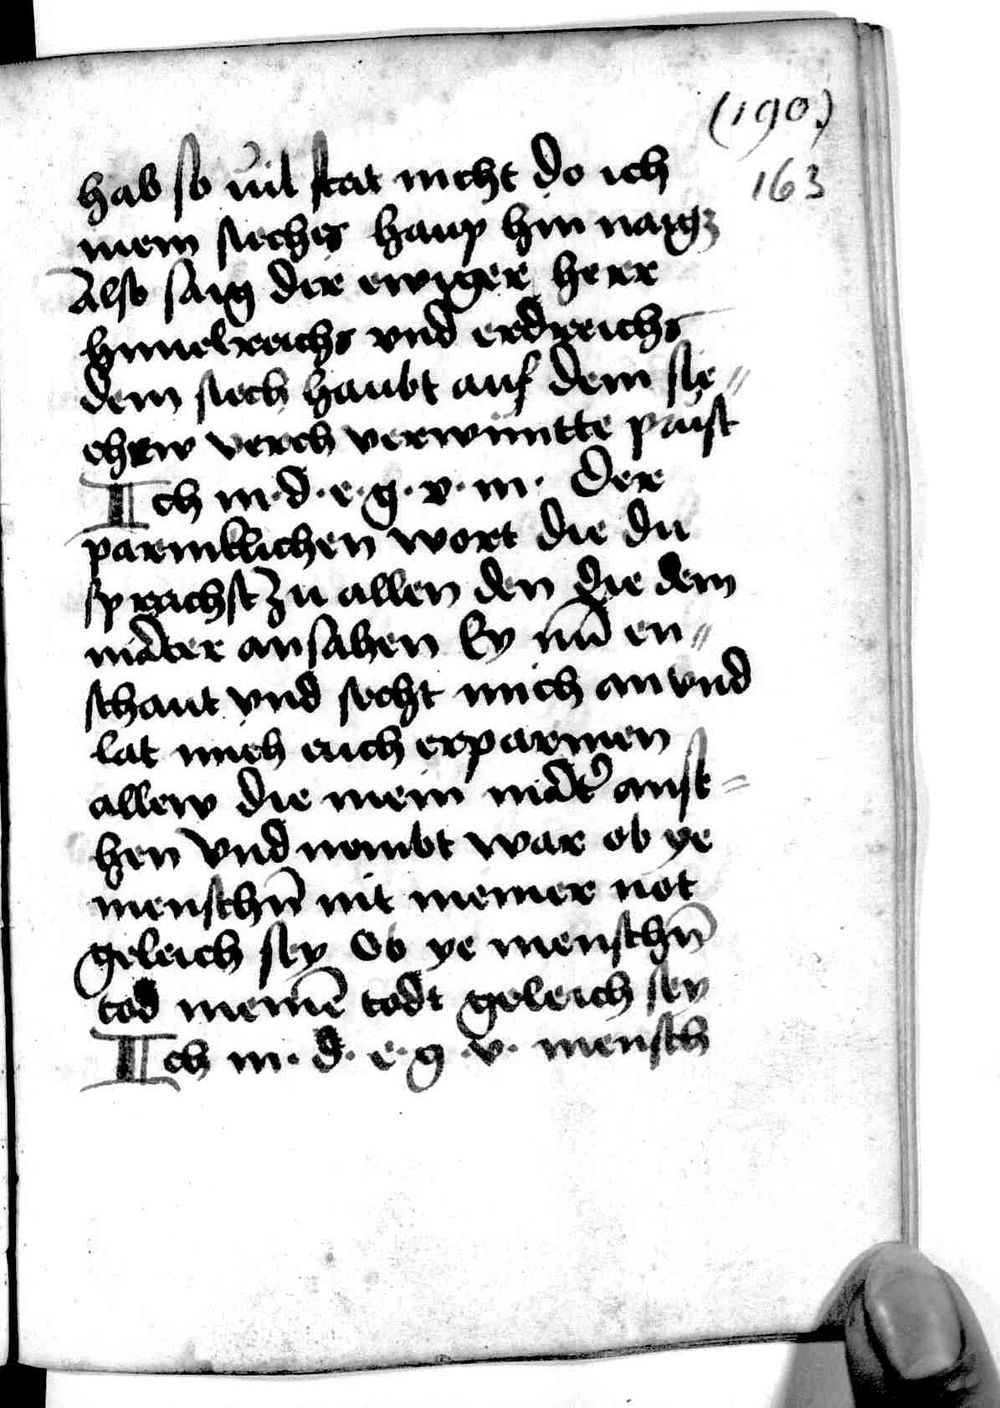 (190)
163
hab so uil stat nicht do ich
mein siechs haup hin naig
Also saig der ewiger herr
himelreichs vnd erdreichs
dem siech haubt auf dem sie-
chew verch verwuntte prust
Ich m·d·e·g·v·m· Der
parmklichen wort die du
sprachst zu allen den die dein
mater ansahen Ey nu en-
schaut vnd secht mich an vnd
lat mich euch erparmen
allew die mein mater anse-
hen Vnd nembt war ob ye
menschn̄ nit meiner not
geleich sey Ob ye menschn̄
tod meinē todt geleich sey
Ich m· d· e· g· v· mensch